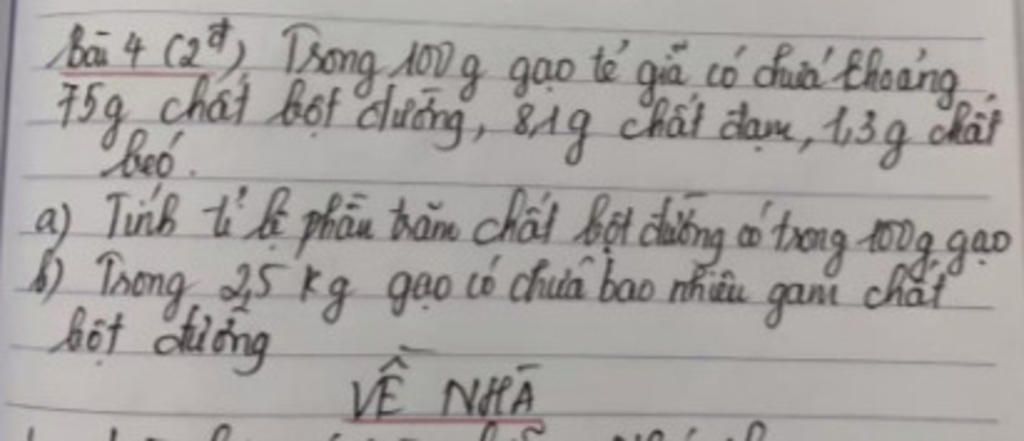 Bài 4 (2đ) Trong 100g gạo tẻ giã có chứa khoảng
75g chất bột đường, 8,1g chất đạm, 1,3g chất
béo.
a) Tính tỉ lệ phần trăm chất bột đường có trong 100g gạo
b) Trong 2,5 kg gạo có chứa bao nhiêu gam chất
bột đường
VỀ NHÀ